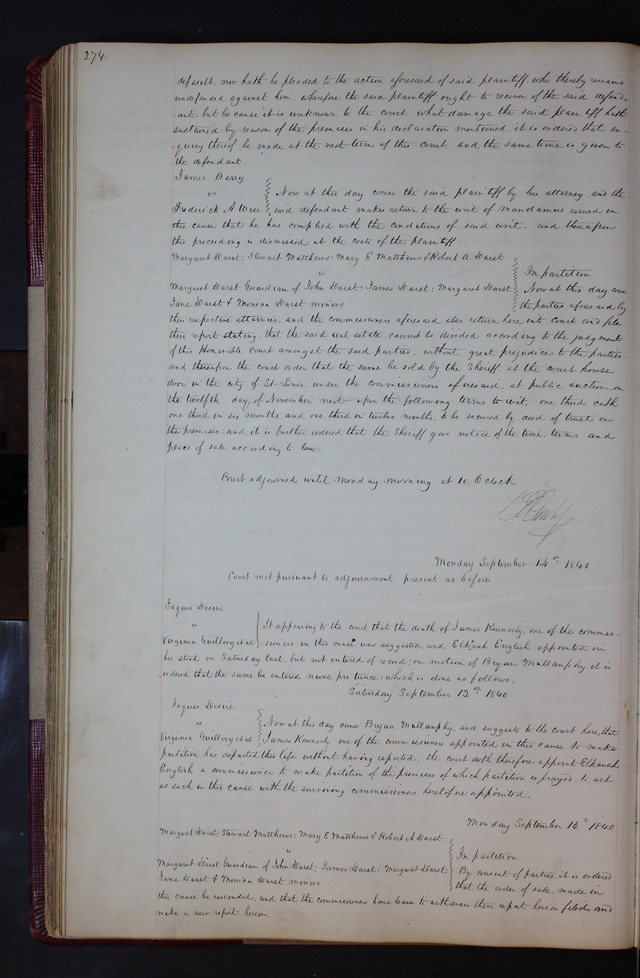 274
default, nor hath he pleaded to the action aforesaid of said plaintiff, who thereby remains
undefended against him wherefore the said plaintiff ought to recover of the said defend-
-ant, but because it is unknown to the court what damage the said plaintiff hath
sustained by reason of the premises in his declaration mentioned, it is ordered that en-
-quiry thereof be made at the next term of this court, and the same time is given to
the defendant.
James Barry
vs
Now at this day comes the said plaintiff by his attorney, and the
Frederick A Wise said defendant makes return to the writ of mandamus issued in
this cause that he has complied with the conditions of said writ, and thereupon
this proceeding is dismissed at the costs of the plaintiff
Margaret Darst; Stewart Matthews; Mary E Matthews & Robert A Darst
vs
In partition
Margaret Darst Guardian of John Darst; James Darst; Margaret Darst Now at this day come
Jane Darst & Monica Darst minors the parties aforesaid by
their respective attornies, and the commissioners aforesaid also return here into court and file
their report stating, that the said real estate cannot be divided according to the judgment
of this Honorable court amongst the said parties, without great prejudice to the parties
and thereupon the court order that the same be sold by the Sheriff, at the court house
door in the city of St Louis, under the commissioners aforesaid, at public auction, on
the twelfth day of November next upon the following terms to wit; one third cash
one third in six months and one third in twelve months, to be secured by deed of trust on
the premises, and it is further ordered that the Sheriff give notice of the time, terms and
place of sale according to law.
Court adjourned until Monday morning at 10. O'clock
Monday September 14th 1840
Court met pursuant to adjournment present as before
Jaques Desire
"
It appearing to the court that the death of James Kennerly, one of the commis-
Virginia Guillory et al -sioners in this cause was suggested, and Elkanah English appointed in
his stead on Saturday last, but not entered of record; on motion of Bryan Mullanphy it is
ordered that the same be entered nunc pro tunc; which is done as follows.
Saturday September 12th 1840
Jaques Desire
"
Now at this day comes Bryan Mullanphy, and suggests to the court here, that
Virginia Guillory et al James Kennerly one of the commissioners appointed in this cause to make
partition has departed this life without having reported. the court doth therefore appoint Elkanah
English a commissioner to make partition of the premises of which partition is prayed, to act
as such in this cause with the surviving commissioners heretofore appointed.
Monday September 14th 1840
Margaret Darst; Stewart Matthews; Mary E Matthews & Robert A Darst
"
In partition
Margaret Darst Guardian of John Darst; James Darst; Margaret Darst; By consent of parties, it is ordered
Jane Darst & Monica Darst minors that the order of sale, made in
this cause be rescinded, and that the commissioners have leave to withdraw their report herein filed, and
make a new report herein